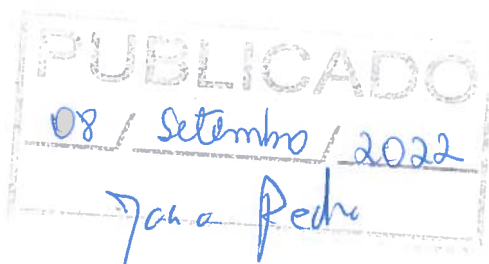 PUBLICADO
08 / Setembro / 2022
Pedro